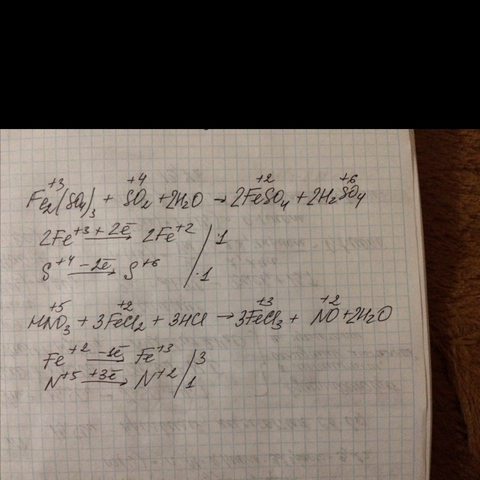 +3 +4 +2 +6
Fe2(SO4)3 + SO2 + 2H2O → 2FeSO4 + 2H2SO4
2Fe+3 +2ē → 2Fe+2 | 1
S+4 -2ē → S+6 | 1
+5 +2 +3 +2
HNO3 + 3FeCl2 + 3HCl → 3FeCl3 + NO + 2H2O
Fe+2 -1ē → Fe+3 | 3
N+5 +3ē → N+2 | 1